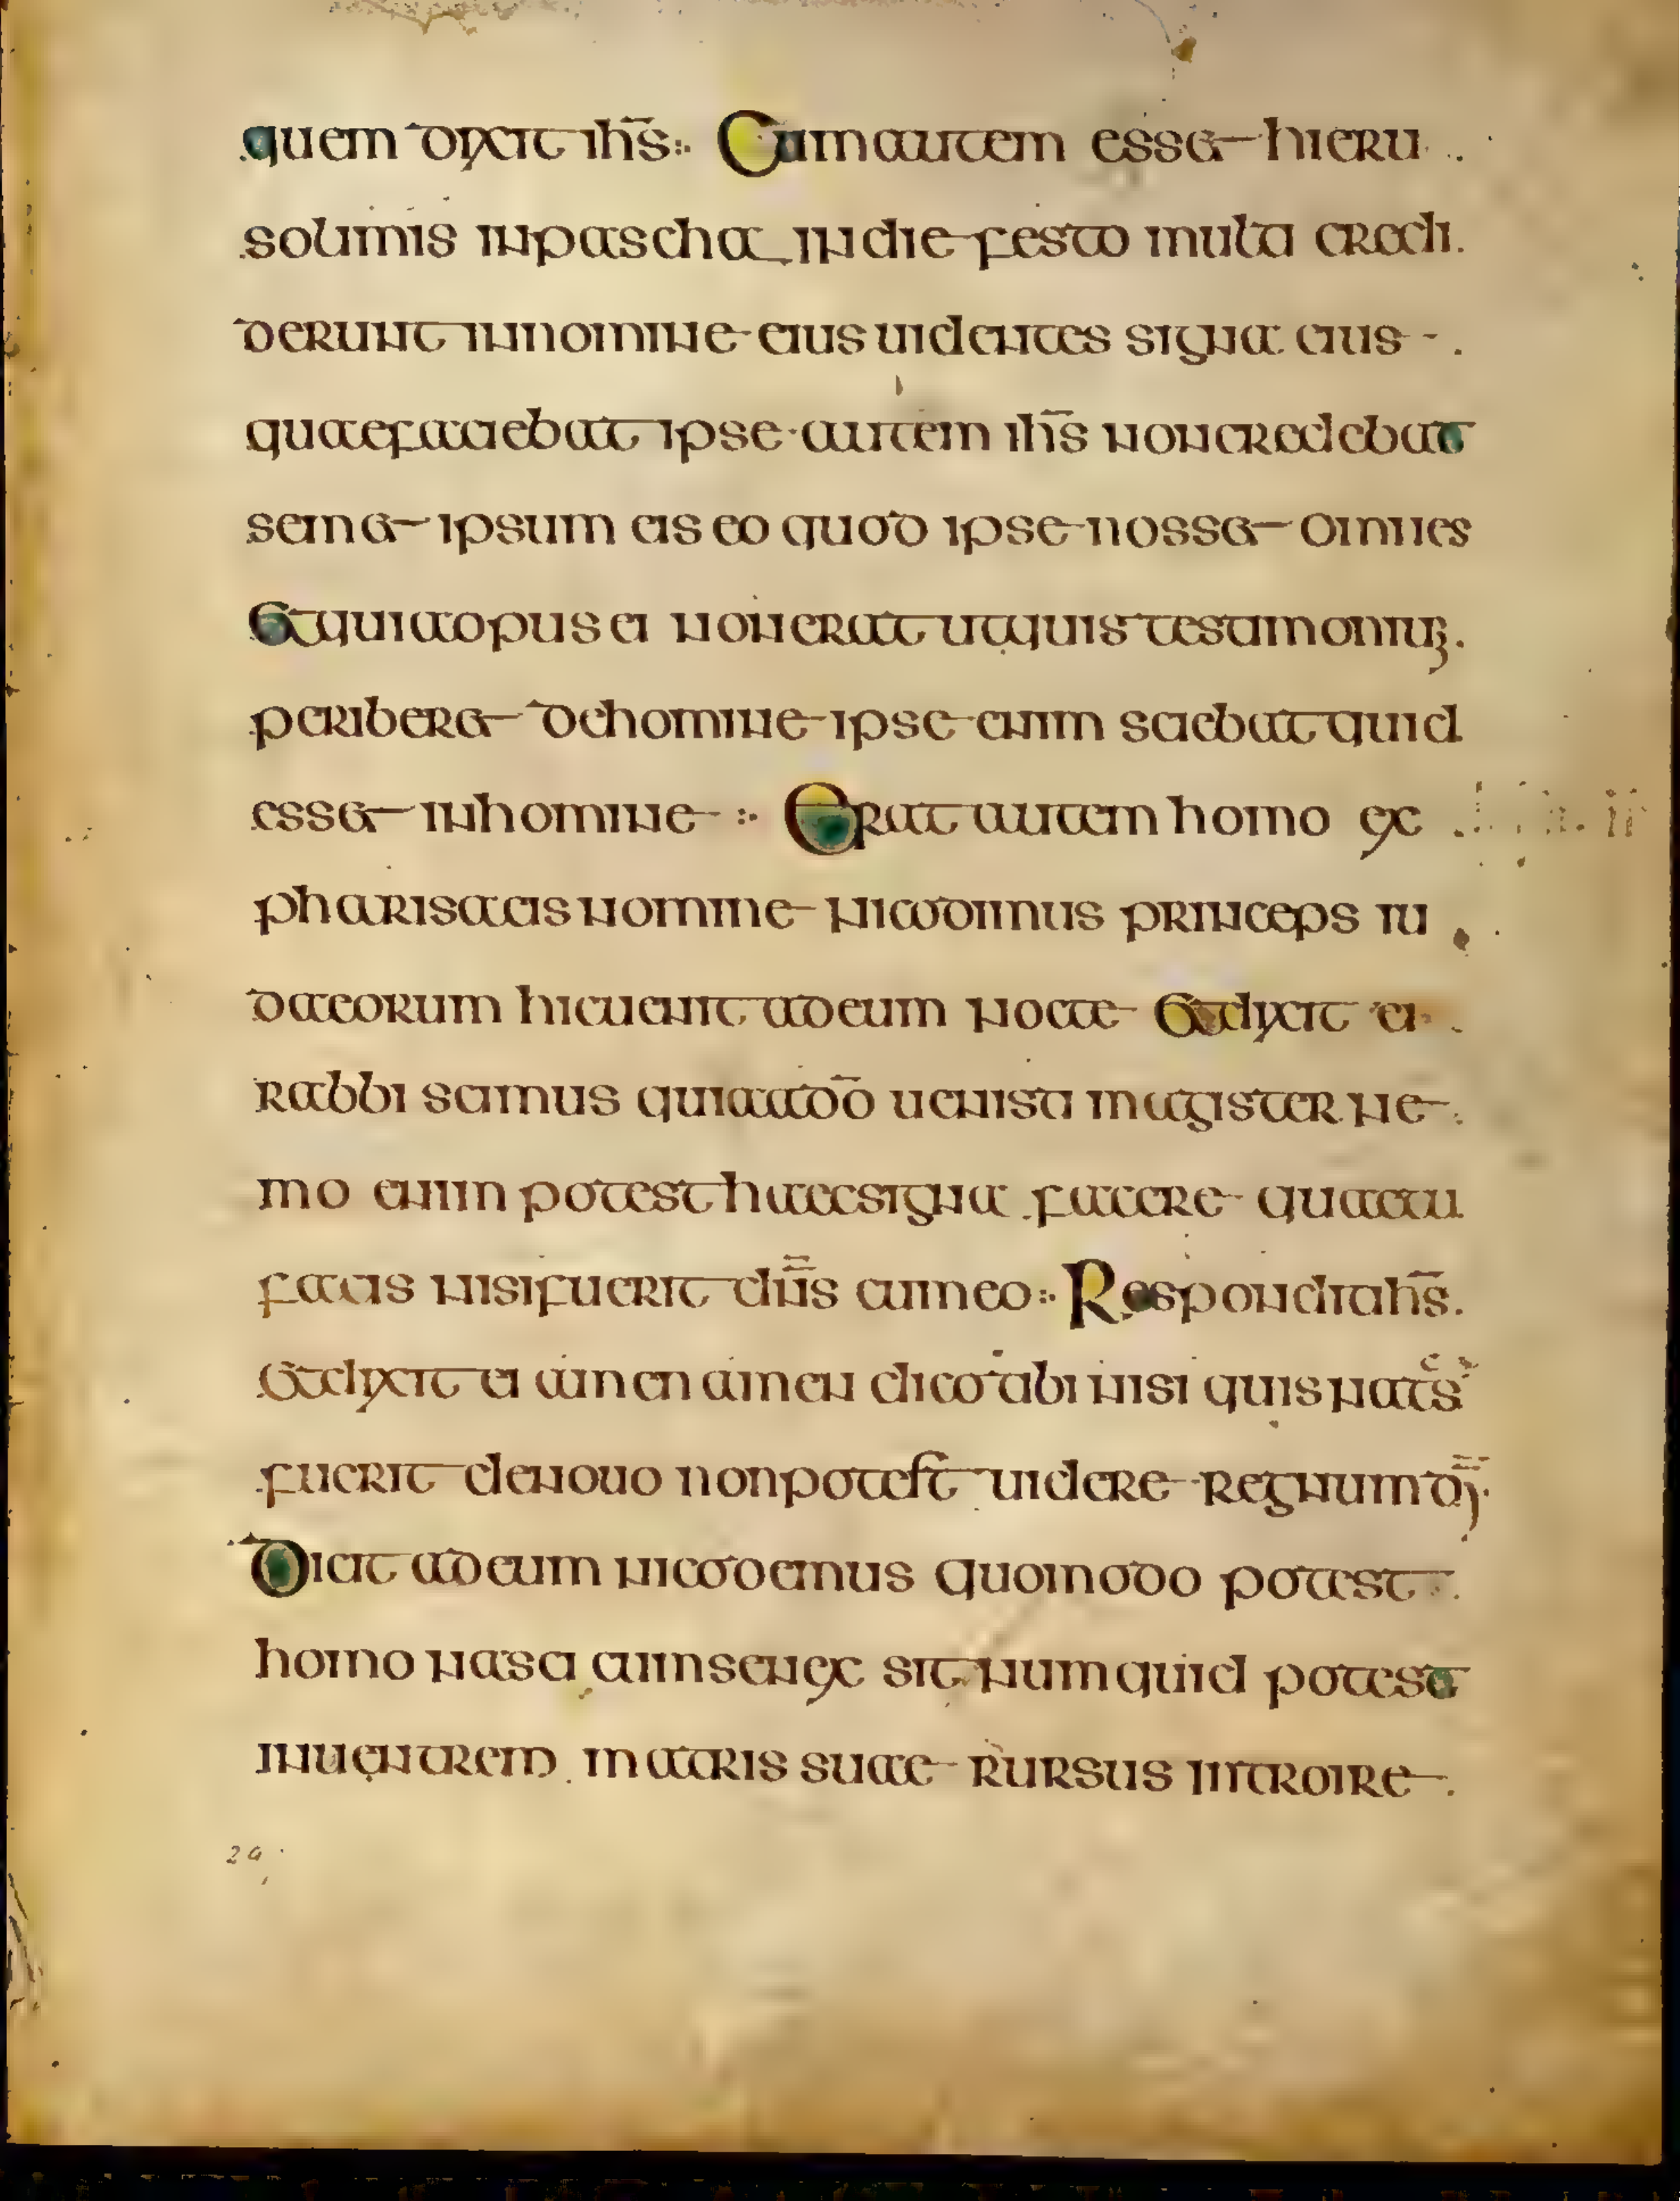 quem dixit ihs̄:· Cumautem esset hieru
solimis inpascha indie festo multi credi
derunt innomine eius uidentes signa eius
quaefaciebat ipse autem ihs̄ noncredebat
semet ipsum eis eo quod ipse nosset omnes
Etquiaopus ei nonerat utquis testimoniuꝫ
periberet dehomine ipse enim sciebat quid
esset inhomine :· Erat autem homo ex
pharisaeis nomine nicodimus princeps iu
daeorum hicuenit adeum nocte Etdixit ei
Rabbi scimus quiaadō uenisti magister ne
mo enim potest haecsigna facere quaetu
facis nisifuerit dn̄s cumeo:· Respondit ihs̄
Etdixit ei amen amen dico tibi nisi quis nats
fuerit denouo nonpotest uidere regnum dī
Dicit adeum nicodemus quomodo potest
homo nasci cumsenex sit numquid potest
inuentrem matris suae rursus introire
29